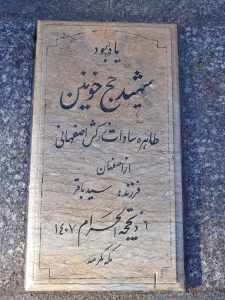 یادبود
شهید حج خونین
طاهره سادات زرکش اصفهانی
از اصفهان
فرزند: سید باقر
۶ ذیحجة الحرام ۱۴۰۷
مکه مکرمه